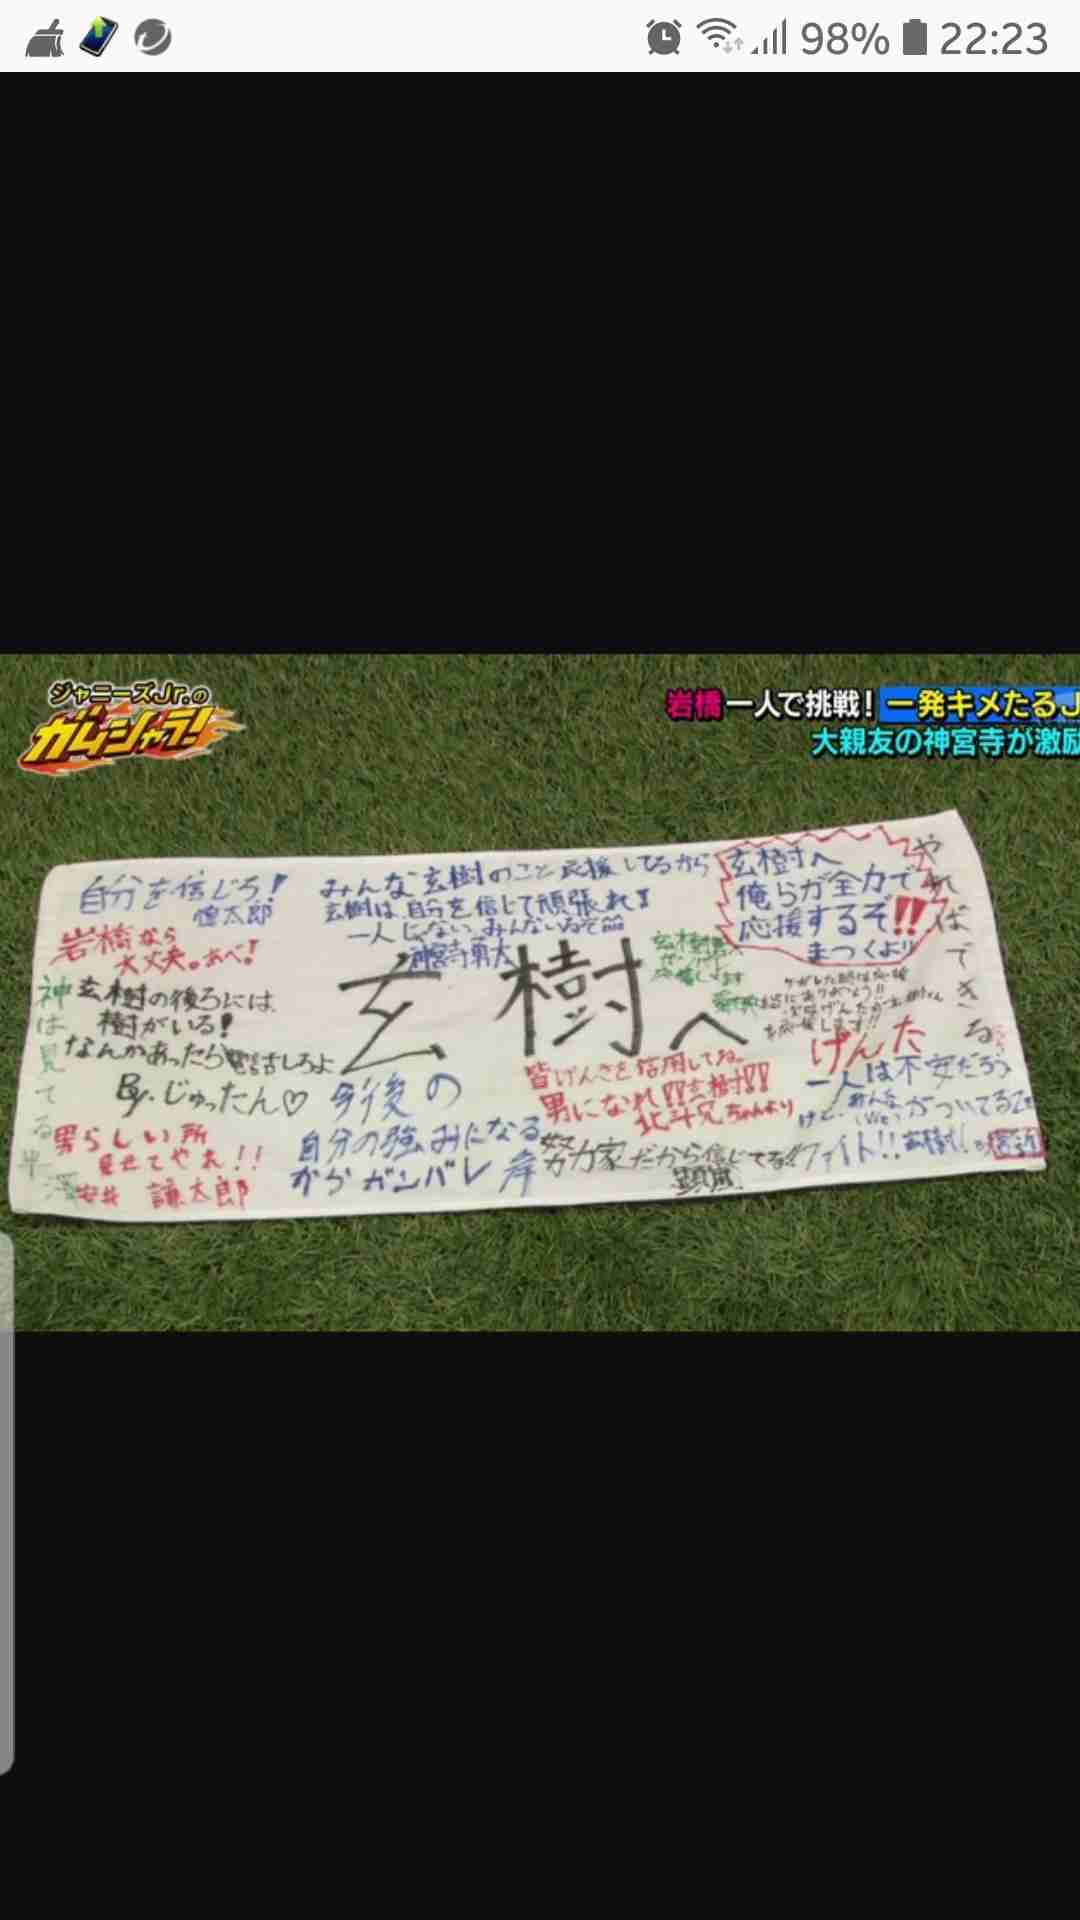 98% 22:23
ジャニーズJr.の
ガムシャラ!
岩橋一人で挑戦!一発キメたるJ
大親友の神宮寺が激励
自分を信じろ!
慎太郎
みんな玄樹のこと応援してるから
玄樹は自分を信じて頑張れ!
一人じゃない、みんないるぞ
神宮寺勇太
玄樹へ
俺らが全力で
応援するぞ!!
まつくより
やればできる
岩橋なら
大丈夫。あべ!
神は見てる
玄樹の後ろには、
樹がいる!
なんかあったら電話しろよ
By.じゅったん♡
玄樹へ
げんた
今後の
自分の強みになる
からガンバレ 岸
皆げんきを信用してね。
男になれ!!玄樹!!
北斗兄ちゃんより
一人は不安だろう
けど、みんな
がついてる
男らしい所
見せてやれ!!
安井 謙太郎
努力家だから信じてる!!ファイト!!
顕嵐